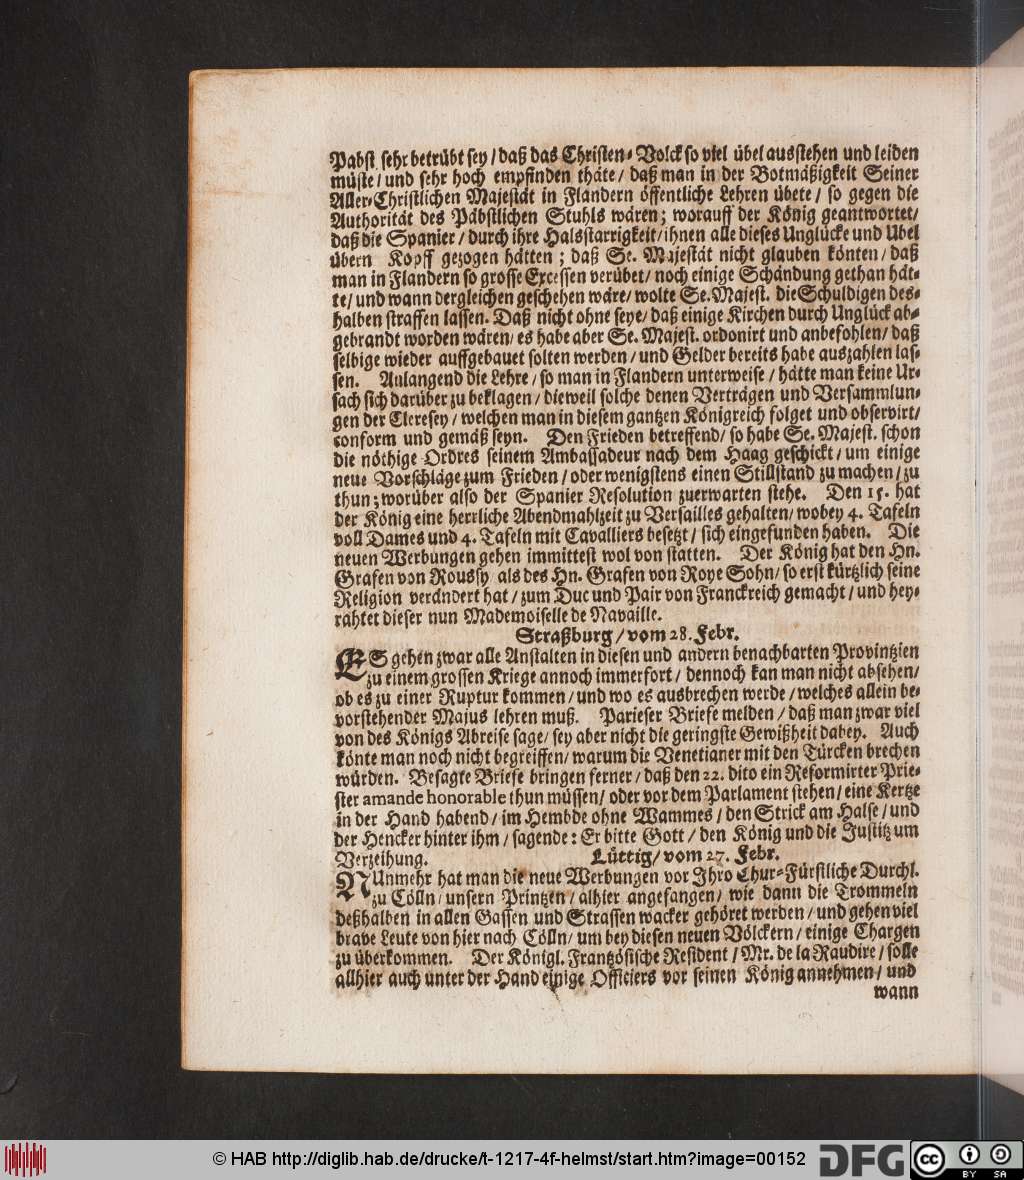 Pabst sehr betrübt sey / daß das Christen- Volck so viel übel ausstehen und leiden
müste / und sehr hoch empfinden thäte / daß man in der Botmäßigkeit Seiner
Aller-Christlichen Majestät in Flandern öffentliche Lehren übete / so gegen die
Authorität des Päbstlichen Stuhls wären; worauff der König geantwortet /
daß die Spanier / durch ihre Halsstarrigkeit / ihnen alle dieses Unglücke und Ubel
übern Kopff gezogen hätten ; daß Se. Majestät nicht glauben könten / daß
man in Flandern so grosse Excessen verübet / noch einige Schändung gethan hät-
te / und wann dergleichen geschehen wäre / wolte Se. Majest. die Schuldigen des-
halben straffen lassen. Daß nicht ohne seye / daß einige Kirchen durch Unglück ab-
gebrandt worden wären / es habe aber Se. Majest. ordonirt und anbefohlen / daß
selbige wieder auffgebauet solten werden / und Gelder bereits habe auszahlen las-
sen. Anlangend die Lehre / so man in Flandern unterweise / hätte man keine Ur-
sach sich darüber zu beklagen / dieweil solche denen Verträgen und Versammlun-
gen der Cleresey / welchen man in diesem gantzen Königreich folget und observirt /
conform und gemäß seyn. Den Frieden betreffend / so habe Se. Majest. schon
die nöthige Ordres seinem Ambassadeur nach dem Haag geschickt / um einige
neue Vorschläge zum Frieden / oder wenigstens einen Stillstand zu machen / zu
thun ; worüber also der Spanier Resolution zuerwarten stehe. Den 15. hat
der König eine herrliche Abendmahlzeit zu Versailles gehalten / wobey 4. Tafeln
voll Dames und 4. Tafeln mit Cavalliers besetzt / sich eingefunden haben. Die
neuen Werbungen gehen immittest wol von statten. Der König hat den Hn.
Grafen von Roussy als des Hn. Grafen von Roye Sohn / so erst kürtzlich seine
Religion verändert hat / zum Duc und Pair von Franckreich gemacht / und hey-
rahtet dieser nun Mademoiselle de Navaille.
Straßburg / vom 28. Febr.
ES gehen zwar alle Anstalten in diesen und andern benachbarten Provintzien
zu einem grossen Kriege annoch immerfort / dennoch kan man nicht absehen /
ob es zu einer Ruptur kommen / und wo es ausbrechen werde / welches allein be-
vorstehender Majus lehren muß. Parieser Briefe melden / daß man zwar viel
von des Königs Abreise sage / sey aber nicht die geringste Gewißheit dabey. Auch
könte man noch nicht begreiffen / warum die Venetianer mit den Türcken brechen
würden. Besagte Briefe bringen ferner / daß den 22. dito ein Reformirter Prie-
ster amande honorable thun müssen / oder vor dem Parlament stehen / eine Kertze
in der Hand habend / im Hembde ohne Wammes / den Strick am Halse / und
der Hencker hinter ihm / sagende : Er bitte Gott / den König und die Justitz um
Verzeihung.
Lüttig / vom 27. Febr.
NUnmehr hat man die neue Werbungen vor Ihro Chur-Fürstliche Durchl.
zu Cölln / unsern Printzen / alhier angefangen / wie dann die Trommeln
deßhalben in allen Gassen und Strassen wacker gehöret werden / und gehen viel
brave Leute von hier nach Cölln / um bey diesen neuen Völckern / einige Chargen
zu überkommen. Der Königl. Frantzösische Resident / Mr. de la Raudire / solle
allhier auch unter der Hand einige Officiers vor seinen König annehmen / und
wann
© HAB http://diglib.hab.de/drucke/t-1217-4f-helmst/start.htm?image=00152
DFG
cc
BY SA